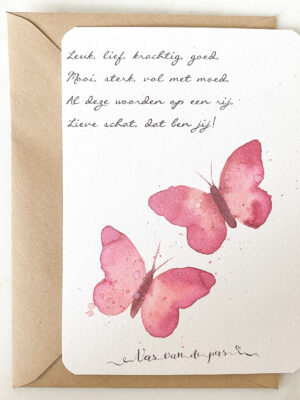 Leuk, lief, krachtig, goed,
Mooi, sterk, vol met moed,
Al deze woorden op een rij,
Lieve schat, dat ben jij!
Vers van de pers